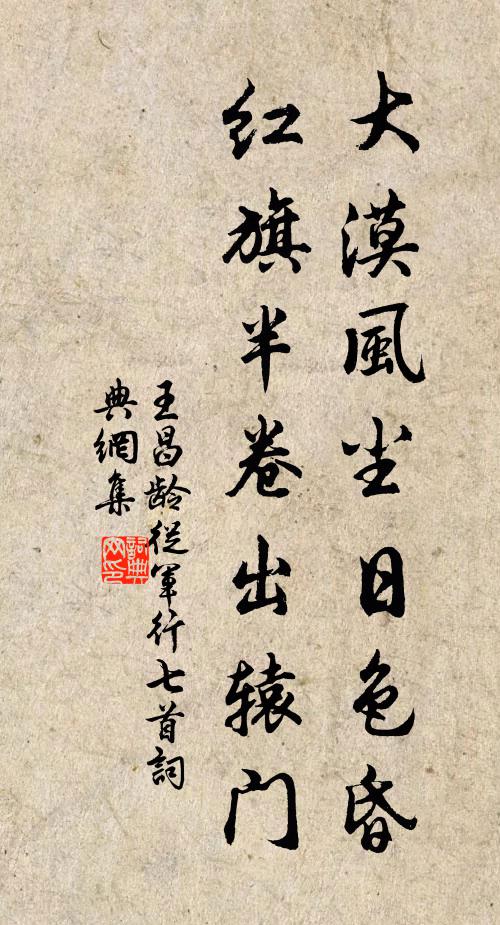 大漠風尘日色昏
红旗半卷出辕门
王昌龄從軍行七首詞
典網集
詞典
网印